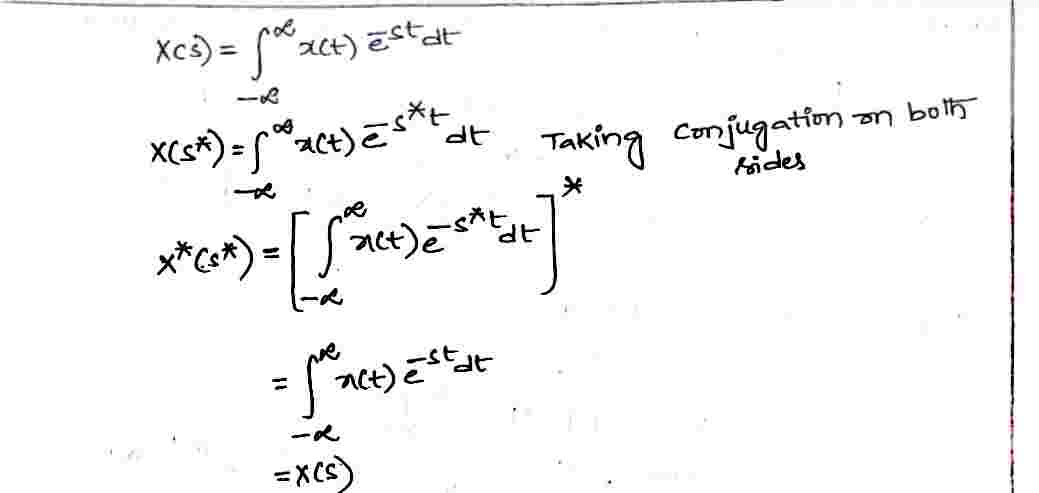 X(s) = ∫_{-∞}^{∞} x(t) e^{-st} dt
X(s*) = ∫_{-∞}^{∞} x(t) e^{-s*t} dt Taking conjugation on both sides
X*(s*) = [ ∫_{-∞}^{∞} x(t) e^{-s*t} dt ]*
= ∫_{-∞}^{∞} x(t) e^{-st} dt
= X(s)